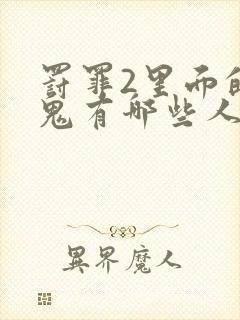 罸罪2里面的
鬼有哪些人
異界魔人